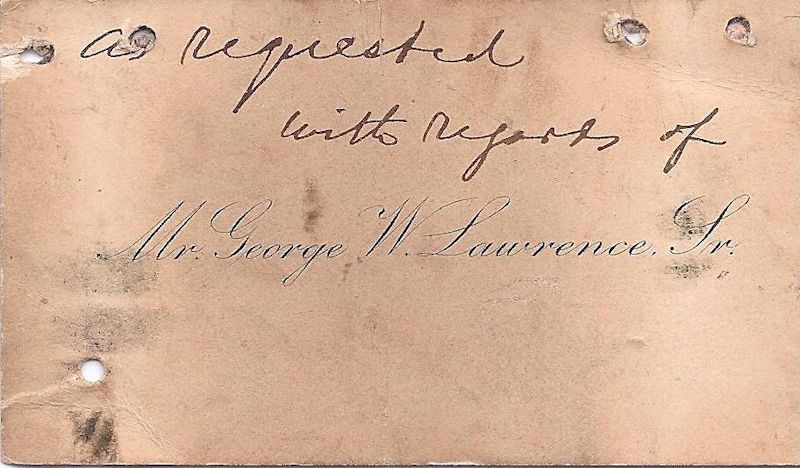 as requested
with regards of
Mr. George W. Lawrence. Sr.